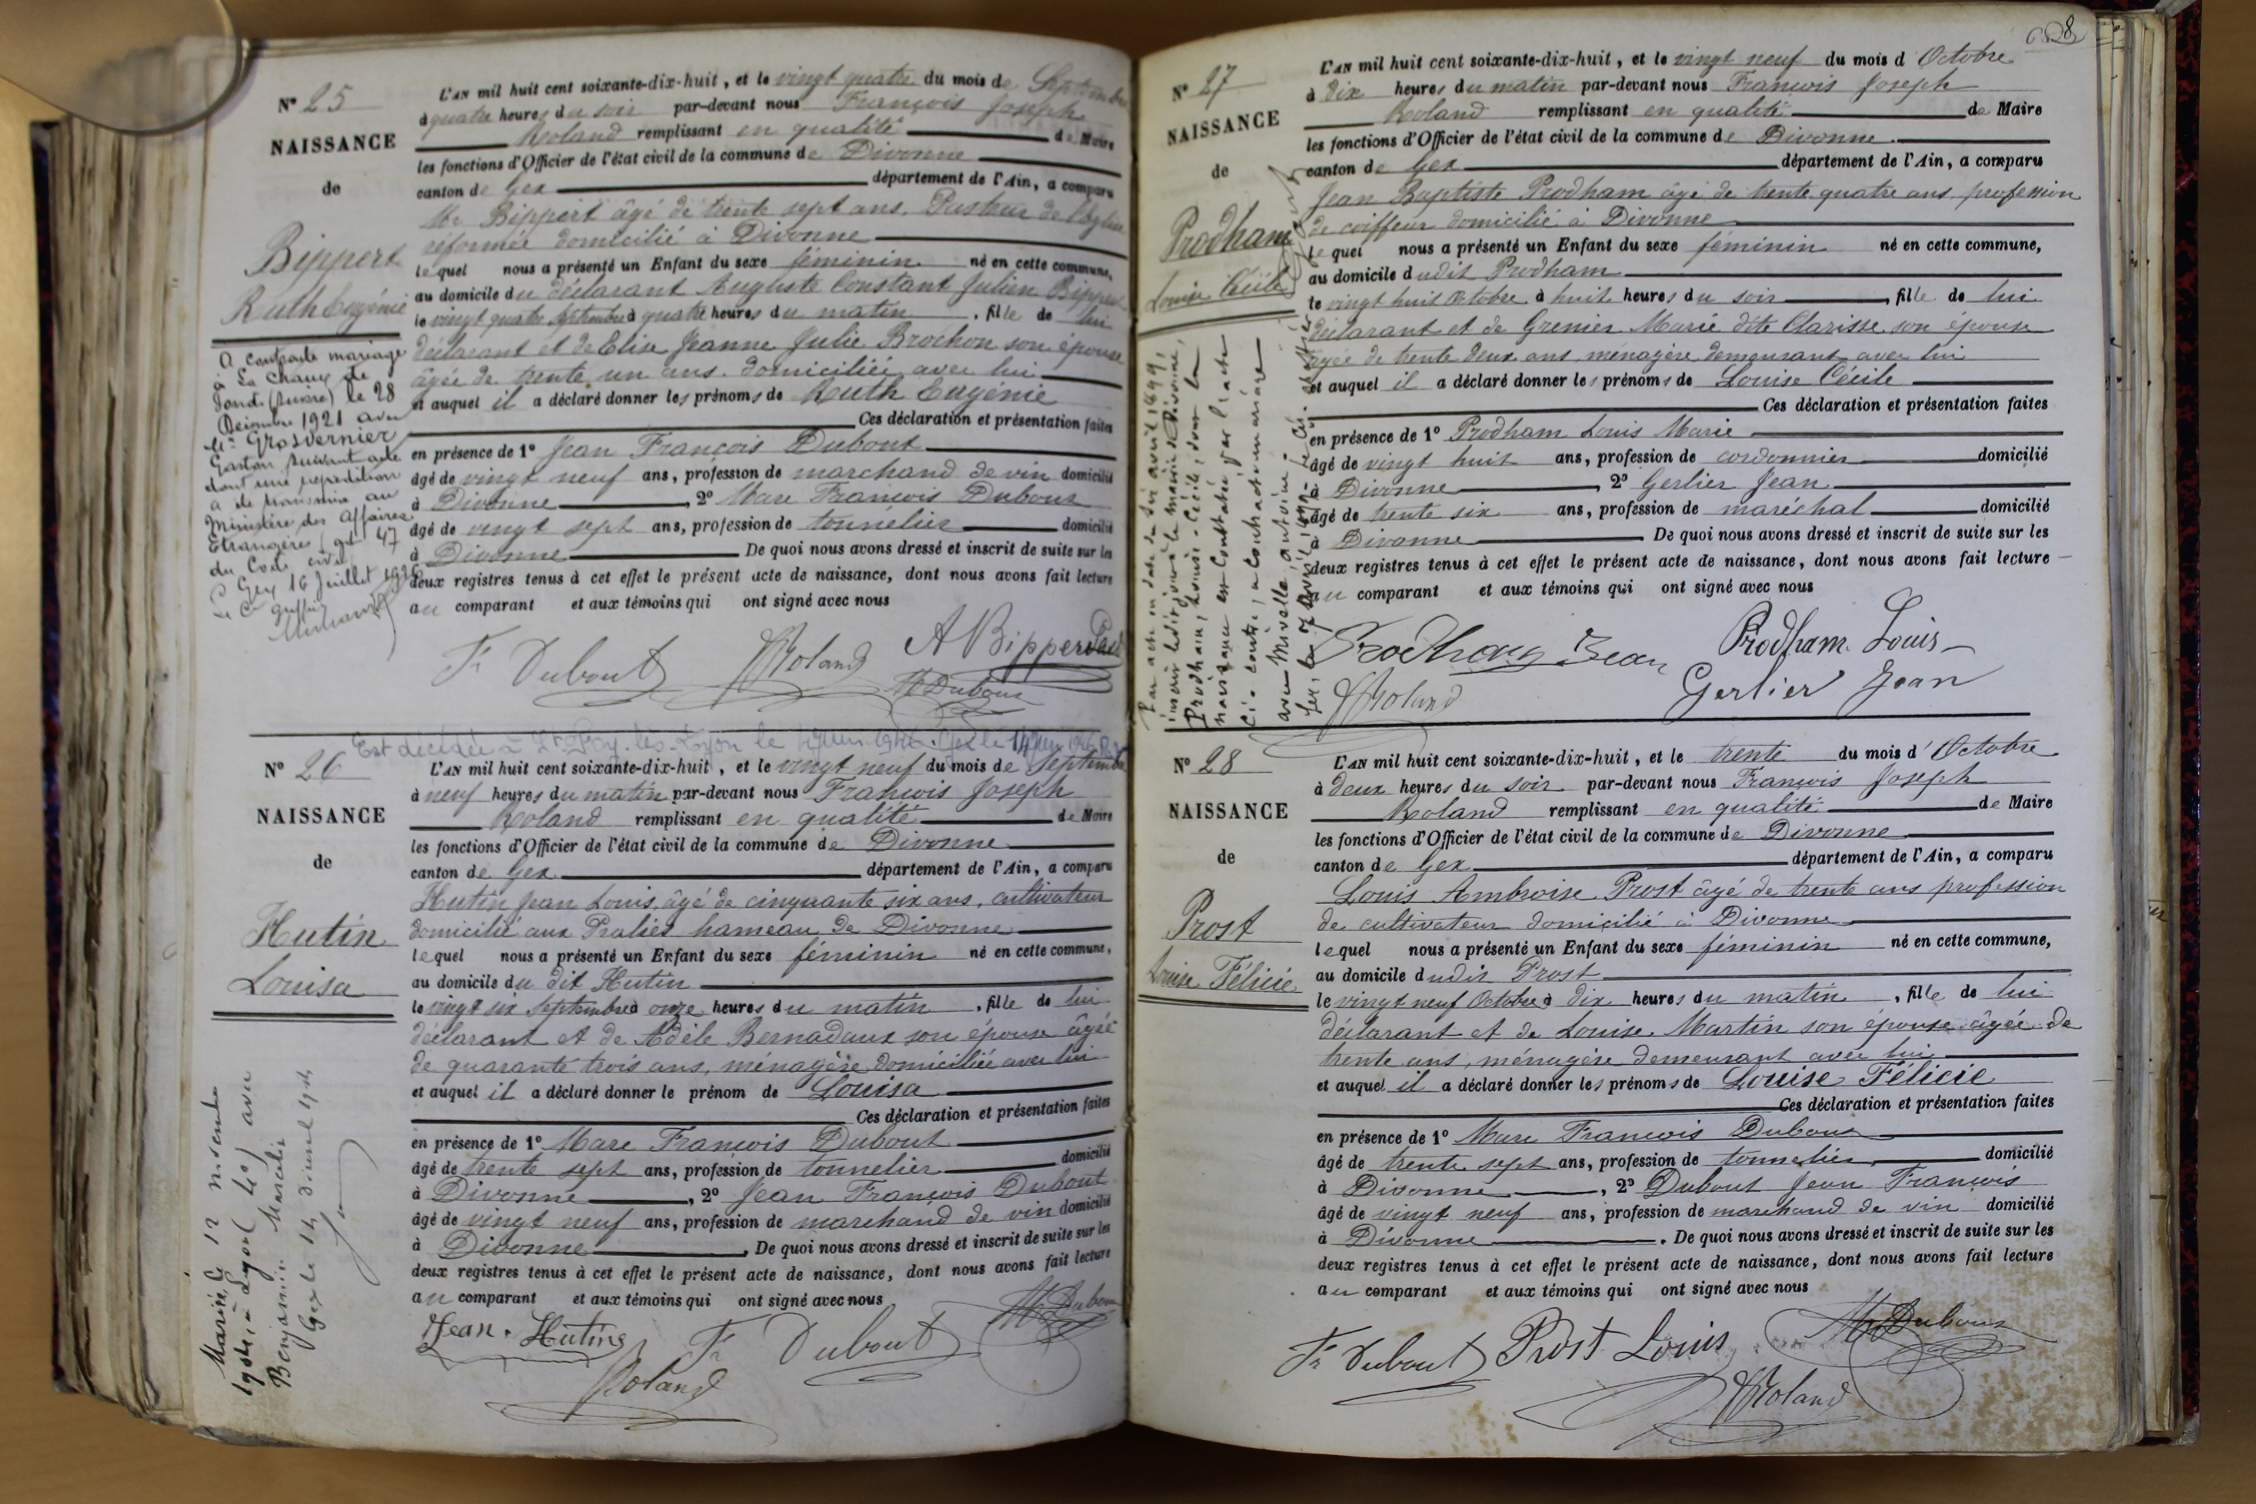 8
N° 25
NAISSANCE
de
Bippert
Ruth Eugénie
A contracté mariage
à La Chaux de
Fonds (Suisse) le 28
Décembre 1921 avec
Grosvernier
Gaston suivant acte
dont une expédition
a été transmise au
Ministère des Affaires
Etrangères, 47
du Code civil
Gex 16 Juillet 1926
L'AN mil huit cent soixante-dix-huit, et le vingt quatre du mois de Septembre
à quatre heures du soir par-devant nous François Joseph
Roland remplissant en qualité de Maire
les fonctions d'Officier de l'état civil de la commune de Divonne
canton de Gex département de l'Ain, a comparu
Mr Bippert âgé de trente sept ans. Pasteur de l'Eglise
réformée domicilié à Divonne
lequel nous a présenté un Enfant du sexe féminin né en cette commune,
au domicile du déclarant Auguste Constant Julien Bippert
le vingt quatre Septembre à quatre heures du matin, fille de lui
déclarant et de Elise Jeanne Julie Brochon son épouse
âgée de trente un ans. domiciliée avec lui
et auquel il a déclaré donner les prénoms de Ruth Eugénie
Ces déclaration et présentation faites
en présence de 1° Jean François Dubout
âgé de vingt neuf ans, profession de marchand de vin domicilié
à Divonne, 2° Marc François Dubout
âgé de vingt sept ans, profession de tonnelier domicilié
à Divonne De quoi nous avons dressé et inscrit de suite sur les
deux registres tenus à cet effet le présent acte de naissance, dont nous avons fait lecture
au comparant et aux témoins qui ont signé avec nous
Fr Dubout Roland A Bippert
M Dubout
Est décédée à
N° 26
NAISSANCE
de
Hutin
Louisa
Marié le 12 novembre
à Lyon (4e) avec
Benjamin Marcelin
Gex le 14
L'AN mil huit cent soixante-dix-huit, et le vingt neuf du mois de Septembre
à neuf heures du matin par-devant nous François Joseph
Roland remplissant en qualité de Maire
les fonctions d'Officier de l'état civil de la commune de Divonne
canton de Gex département de l'Ain, a comparu
Hutin Jean Louis, âgé de cinquante six ans, cultivateur
domicilié aux Praliés hameau de Divonne
lequel nous a présenté un Enfant du sexe féminin né en cette commune,
au domicile du dit Hutin
le vingt six Septembre à onze heures du matin, fille de lui
déclarant et de Adèle Bernadaux son épouse âgée
de quarante trois ans, ménagère domiciliée avec lui
et auquel il a déclaré donner le prénom de Louisa
Ces déclaration et présentation faites
en présence de 1° Marc François Dubout
âgé de trente sept ans, profession de tonnelier domicilié
à Divonne, 2° Jean François Dubout
âgé de vingt neuf ans, profession de marchand de vin domicilié
à Divonne, De quoi nous avons dressé et inscrit de suite sur les
deux registres tenus à cet effet le présent acte de naissance, dont nous avons fait lecture
au comparant et aux témoins qui ont signé avec nous
Jean Hutin Fr Dubout M Dubout
Roland
N° 27
NAISSANCE
de
Prodham
Louise Cécile
Prodham, Louise-Cécile, dont la
naissance est constatée par l'acte
ci-contre, a contracté mariage
avec
L'AN mil huit cent soixante-dix-huit, et le vingt neuf du mois d Octobre
à dix heures du matin par-devant nous François Joseph
Roland remplissant en qualité de Maire
les fonctions d'Officier de l'état civil de la commune de Divonne
canton de Gex département de l'Ain, a comparu
Jean Baptiste Prodham âgé de trente quatre ans, profession
de coiffeur domicilié à Divonne
lequel nous a présenté un Enfant du sexe féminin né en cette commune,
au domicile dudit Prodham
le vingt huit Octobre à huit heures du soir, fille de lui
déclarant et de Grenier Marie dite Clarisse son épouse
âgée de trente deux ans ménagère demeurant avec lui
et auquel il a déclaré donner les prénoms de Louise Cécile
Ces déclaration et présentation faites
en présence de 1° Prodham Louis Marie
âgé de vingt huit ans, profession de cordonnier domicilié
à Divonne, 2° Gerlier Jean
âgé de trente six ans, profession de maréchal domicilié
à Divonne De quoi nous avons dressé et inscrit de suite sur les
deux registres tenus à cet effet le présent acte de naissance, dont nous avons fait lecture
au comparant et aux témoins qui ont signé avec nous
Prodham Jean Prodham Louis
Roland Gerlier Jean
N° 28
NAISSANCE
de
Prost
Louise Félicie
L'AN mil huit cent soixante-dix-huit, et le trente du mois d'Octobre
à deux heures du soir par-devant nous François Joseph
Roland remplissant en qualité de Maire
les fonctions d'Officier de l'état civil de la commune de Divonne
canton de Gex département de l'Ain, a comparu
Louis Ambroise Prost âgé de trente ans profession
de cultivateur domicilié à Divonne
lequel nous a présenté un Enfant du sexe féminin né en cette commune,
au domicile dudit Prost
le vingt neuf Octobre à dix heures du matin, fille de lui
déclarant et de Louise Martin son épouse âgée de
trente ans, ménagère demeurant avec lui
et auquel il a déclaré donner les prénoms de Louise Félicie
Ces déclaration et présentation faites
en présence de 1° Marc François Dubout
âgé de trente sept ans, profession de tonnelier domicilié
à Divonne, 2° Dubout Jean François
âgé de vingt neuf ans, profession de marchand de vin domicilié
à Divonne. De quoi nous avons dressé et inscrit de suite sur les
deux registres tenus à cet effet le présent acte de naissance, dont nous avons fait lecture
au comparant et aux témoins qui ont signé avec nous
Fr Dubout Prost Louis M Dubout
Roland